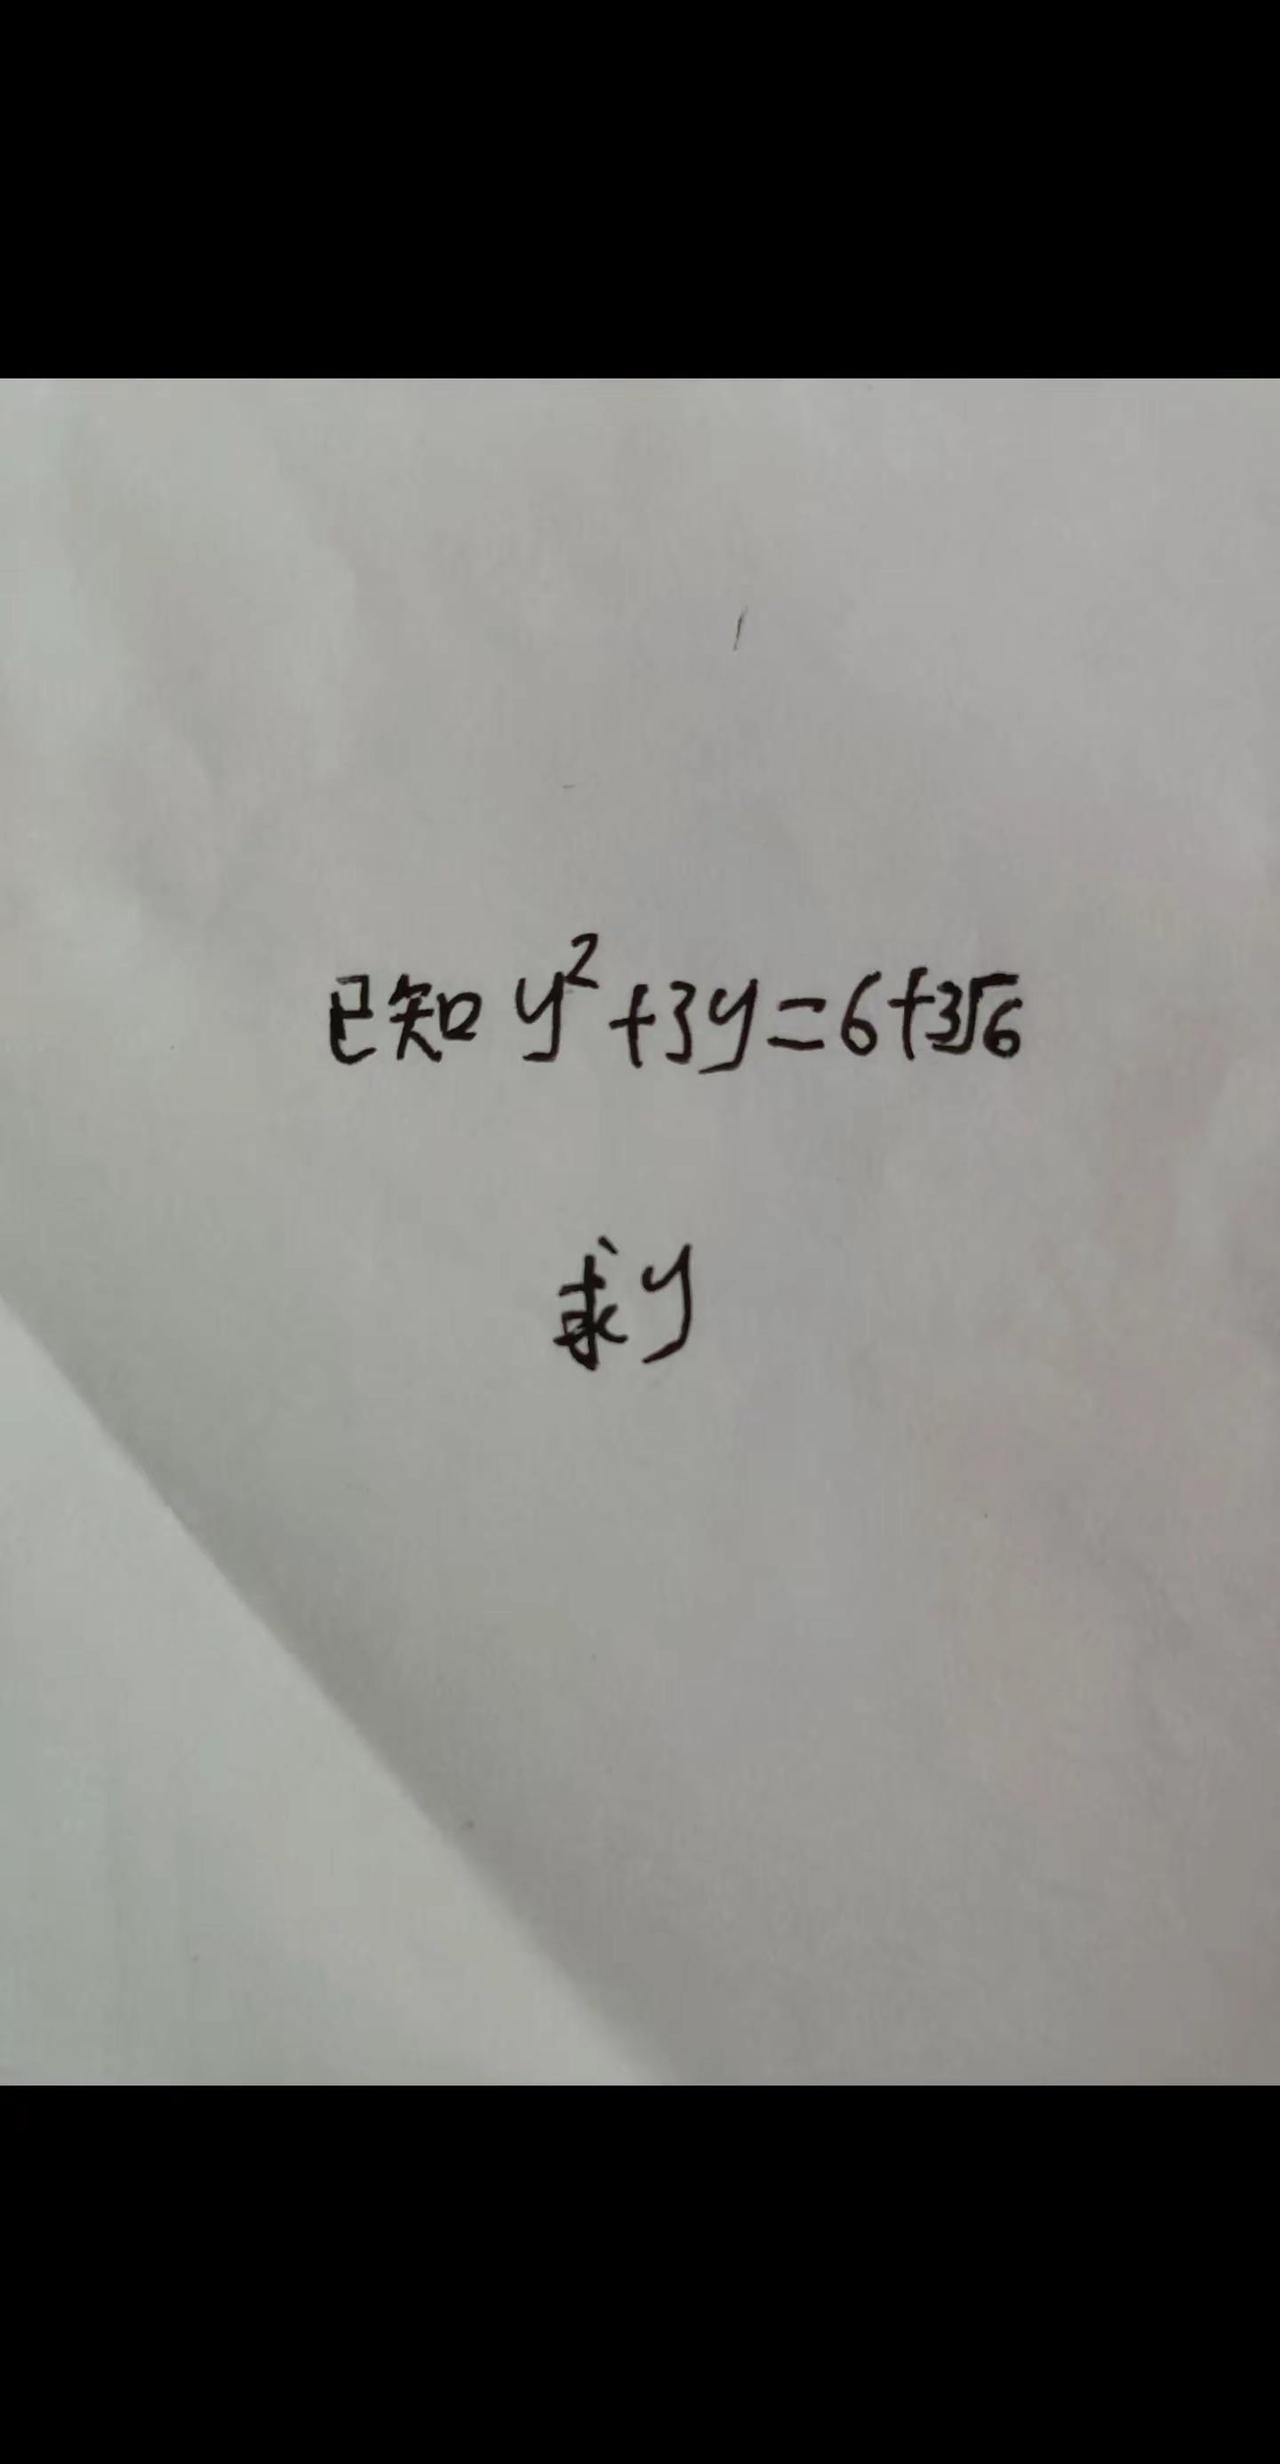 已知 y²+3y=6+3√6
求y